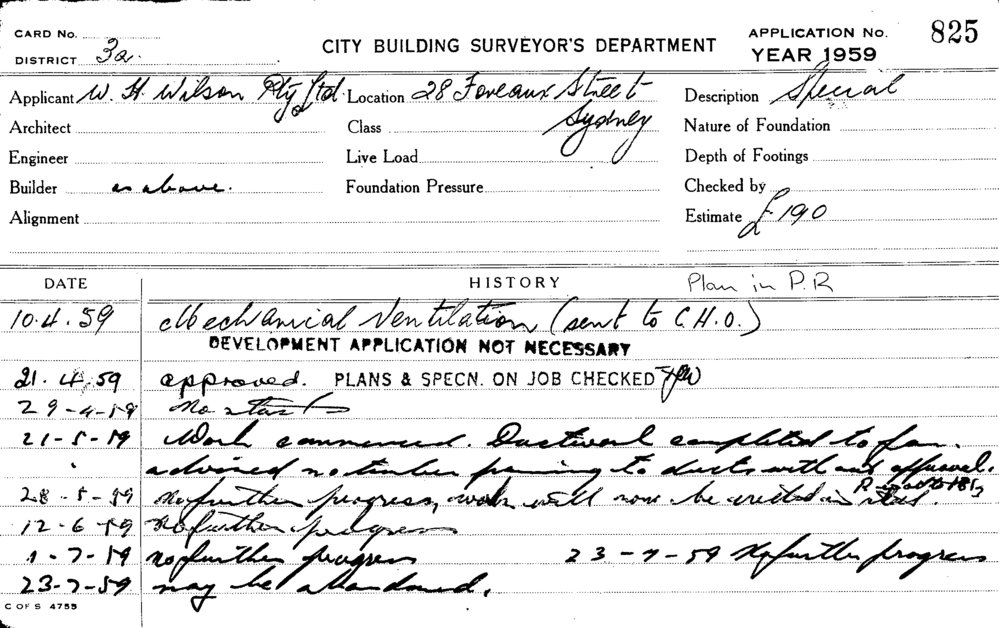 CARD No.
DISTRICT 3a.
CITY BUILDING SURVEYOR'S DEPARTMENT
APPLICATION No. 825
YEAR 1959
Applicant W. H. Wilson Pty Ltd. Location 28 Foveaux Street Sydney Description Special
Architect Class Nature of Foundation
Engineer Live Load Depth of Footings
Builder as above. Foundation Pressure Checked by
Alignment Estimate £190
DATE HISTORY Plan in P.R
10.4.59 Mechanical Ventilation (sent to C.H.O.)
DEVELOPMENT APPLICATION NOT NECESSARY
21.4.59 approved. PLANS & SPECN. ON JOB CHECKED
29-4-59 No start
21-5-59 Work commenced. Ductwork completed to fan.
advised no timber framing to ducts without approval.
28-5-59 No further progress, work will now be erected in steel.
12-6-59 No further progress
1-7-59 No further progress 23-7-59 No further progress
23-7-59 may be abandoned.
C OF S 4755